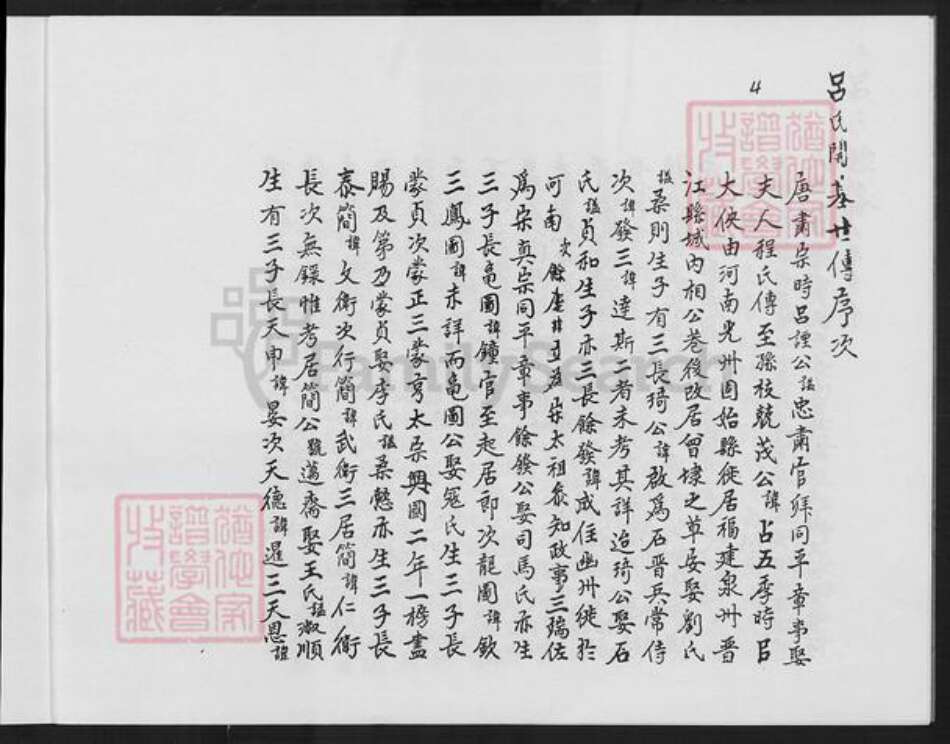 呂氏開基廿傳序次
4
唐肅宗時呂諲公諡忠肅官拜同平章事娶
夫人程氏傳至孫枝競茂公諱占五季時呂
大俠由河南光州固始縣徙居福建泉州晉
江縣城內相公巷後改居曾埭之草安娶劉氏
諡柔則生子有三長琦公諱啟為石晉兵常侍
次諱發三諱達斯二者未考其詳迨琦公娶石
氏諡貞和生子亦三長餘發諱成住幽州徙於
河南次餘慶諱立為宋太祖參知政事三瑞佐
為宋真宗同平章事餘發公娶司馬氏亦生
三子長龜圖諱鐘官至起居郎次龍圖諱欽
三鳳圖諱未詳而龜圖公娶冦氏生三子長
蒙貞次蒙正三蒙亨太宗興國二年一榜盡
賜及第乃蒙貞娶李氏諡柔懿亦生三子長
泰簡諱文衛次行簡諱武衛三居簡諱仁衛
長次無錄惟考居簡公號邁齋娶王氏諡淑順
生有三子長天申諱晏次天德諱暹三天恩諱
猶他家
譜學會
收藏
猶他家
譜學會
收藏
FamilySearch